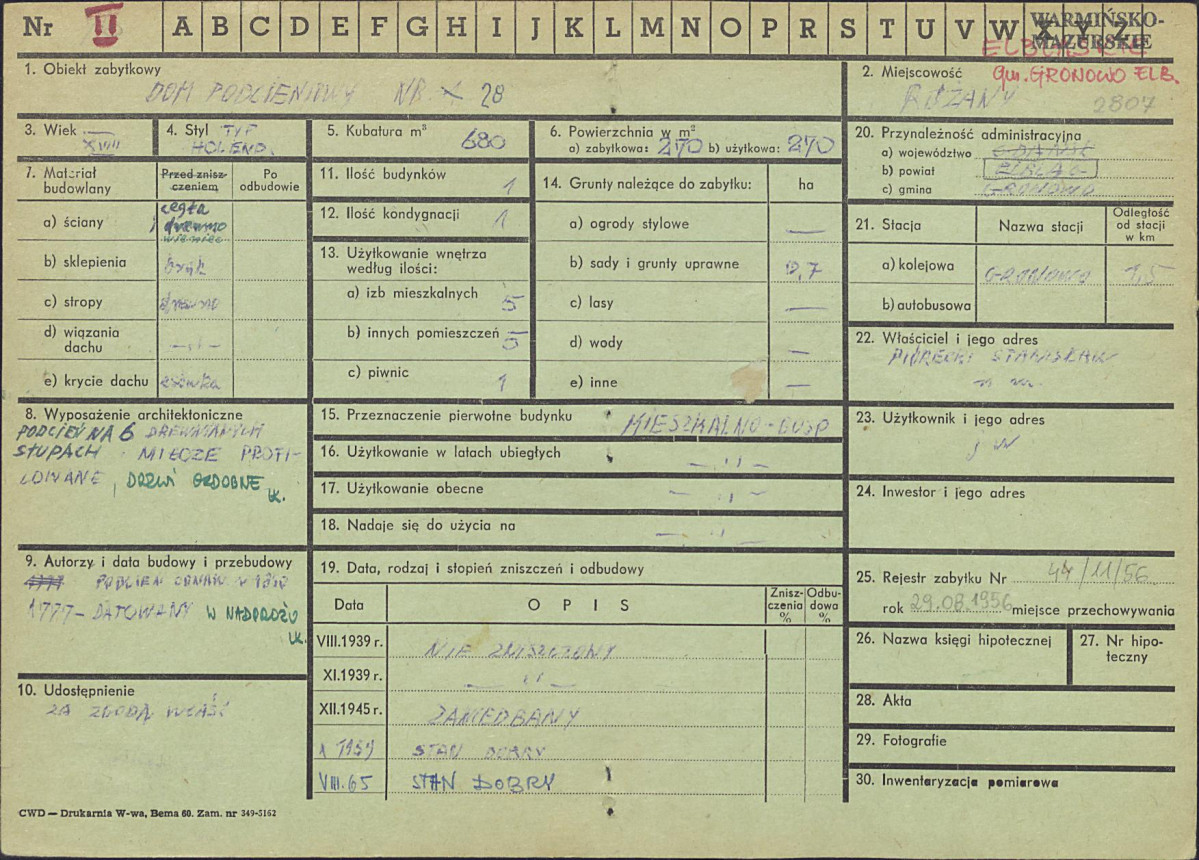 Nr II A B C D E F G H I J K L M N O P R S T U V W X Y Z
WARMIŃSKO-
MAZURSKIE
gm. GRONOWO ELB.
1. Obiekt zabytkowy
DOM PODCIENIOWY NR 28
2. Miejscowość
RÓŻANY
2807
3. Wiek
XVIII
4. Styl TYP
HOLEND.
5. Kubatura m³ 680
6. Powierzchnia w m²
a) zabytkowa: 270 b) użytkowa: 270
20. Przynależność administracyjna
a) województwo GDAŃSK
b) powiat ELBLĄG
c) gmina GRONOWO
7. Materiał
budowlany
Przed znisz-
czeniem
Po
odbudowie
a) ściany cegła
drewno
b) sklepienia brak
c) stropy drewno
d) wiązania
dachu — „ —
e) krycie dachu
11. Ilość budynków 1
12. Ilość kondygnacji 1
13. Użytkowanie wnętrza
według ilości:
a) izb mieszkalnych 5
b) innych pomieszczeń 5
c) piwnic 1
14. Grunty należące do zabytku: ha
a) ogrody stylowe —
b) sady i grunty uprawne 0,7
c) lasy —
d) wody —
e) inne —
21. Stacja
Nazwa stacji
Odległość
od stacji
w km
a) kolejowa GRONOWO 1,5
b) autobusowa
22. Właściciel i jego adres
PIÓRECKI STANISŁAW
8. Wyposażenie architektoniczne
PODCIEŃ NA 6 DREWNIANYCH
SŁUPACH. MIECZE PROFI-
LOWANE, DRZWI OZDOBNE
15. Przeznaczenie pierwotne budynku MIESZKALNO-GOSP
16. Użytkowanie w latach ubiegłych — „ —
17. Użytkowanie obecne — „ —
18. Nadaje się do użycia na — „ —
23. Użytkownik i jego adres
j w
24. Inwestor i jego adres
9. Autorzy i data budowy i przebudowy
1777 PODCIEŃ
1777 - DATOWANY W NADPROŻU
19. Data, rodzaj i stopień zniszczeń i odbudowy
Data
OPIS
Znisz-
czenia
%
Odbu-
dowa
%
VIII.1939 r. NIE ZNISZCZONY
XI.1939 r. — „ —
XII.1945 r. ZANIEDBANY
X 1959 STAN DOBRY
VIII.65 STAN DOBRY
25. Rejestr zabytku Nr 44/11/56
rok 29.08.1956 miejsce przechowywania
26. Nazwa księgi hipotecznej
27. Nr hipo-
teczny
10. Udostępnienie
ZA ZGODĄ WŁAŚĆ
28. Akta
29. Fotografie
30. Inwentaryzacja pomiarowa
CWD — Drukarnia W-wa, Bema 60. Zam. nr 349-5162